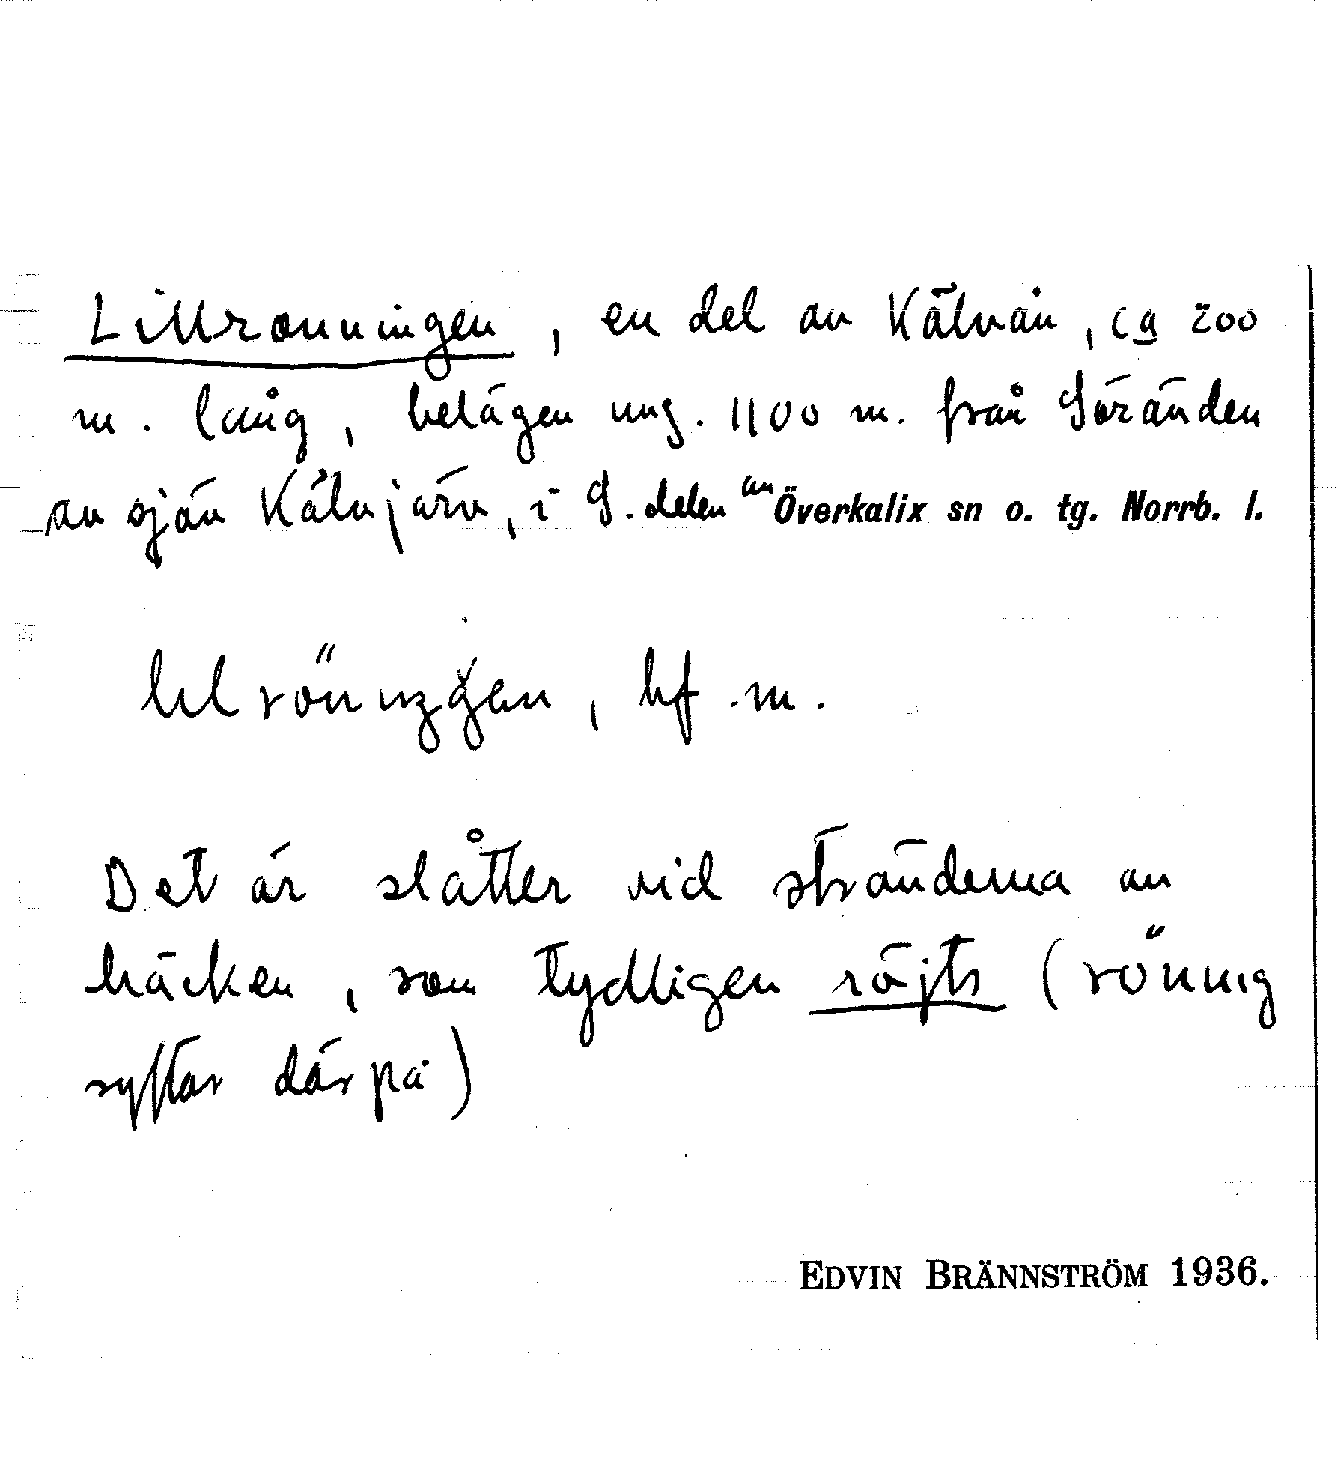 Lillrönningen, en del av Kälvån, ca 200
m. lång, belägen ung. 1100 m. från Söränden
av sjön Kälvjärv, i S. delen av Överkalix sn o. tg. Norrb. l.
bf. m.
Det är slåtter vid stränderna av
bäcken, som tydligen röjts (rönnig
syftar därpå)
EDVIN BRÄNNSTRÖM 1936.